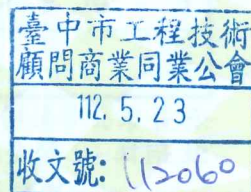 臺中市工程技術
顧問商業同業公會
112. 5. 23
收文號: 112060